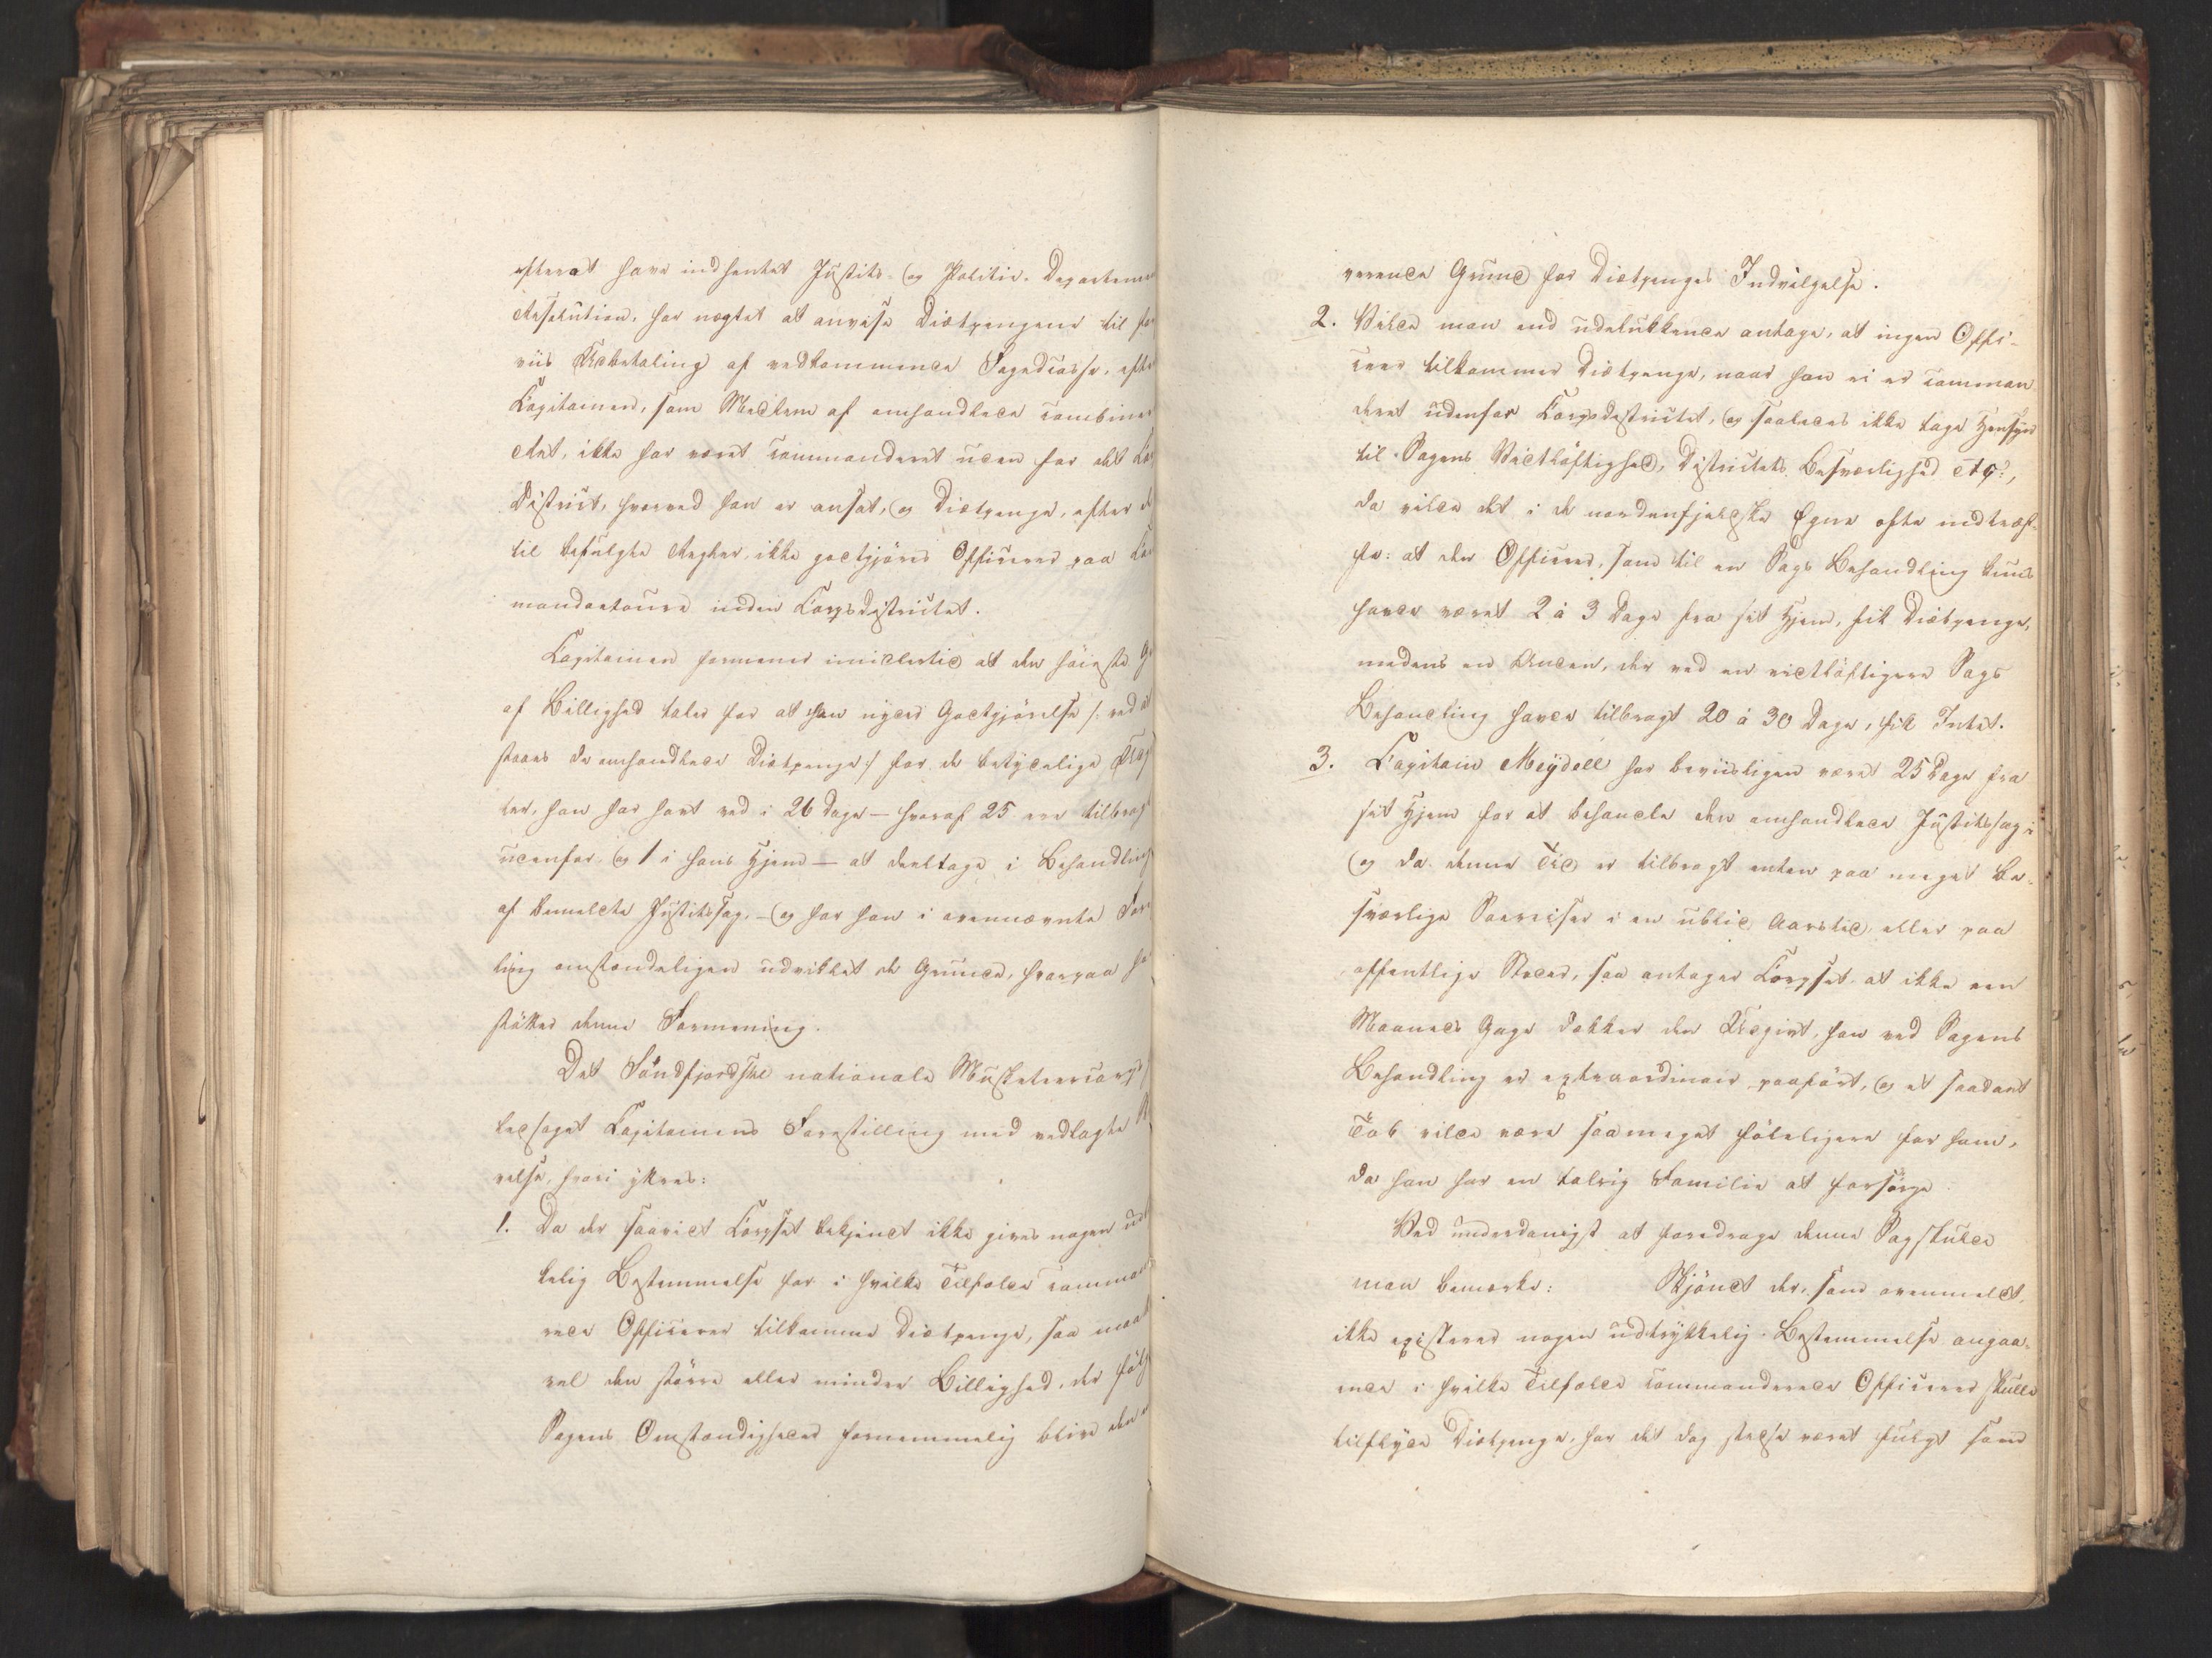 efterat have indhentet Justits- og Politie-Departeme
Resolution, har nægtet at anvise Diætpengene til for
viis Udbetaling af vedkommende Fogedcasse, efter
Capitainen, som Medlem af omhandlede combine
Ret, ikke har været commanderet uden for det Co
District, hvorved han er ansat, og Diætpenge, efter de
til befulgte Regler, ikke godtgjøres Officerer paa Co
mandotoure inden Corpsdistrictet.
Capitainen formener imidlertid at den høieste G
af Billighed taler for at han nyder Godtgjørelse /: ved at
staaes de omhandlede Diætpenge :/ for de betydelige Udg
ter, han har havt ved i 26 Dage — hvoraf 25 ere tilbragt
udenfor og 1 i hans Hjem — at deeltage i Behandling
af bemeldte Justitssag, — og har han i ovennævnte Fore
ling omstændeligen udviklet de Grunde, hvorpaa ha
støtter denne Formening.
Det Søndfjordske nationale Musketeercorps
ledsaget Capitainens Forestilling med vedlagte
relse, hvori yttres:
1. Da der saavidt Corpset bekjendt ikke gives nogen udt
kelig Bestemmelse for i hvilke Tilfælde comman
rede Officerer tilkomme Diætpenge, saa maat
vel den større eller mindre Billighed, der følg
Sagens Omstændigheder fornemmelig blive den a
verende Grund for Diætpenges Indvilgelse.
2. Vilde man end udelukkende antage, at ingen Offi-
ceer tilkommer Diætpenge, naar han ei er comman
deret udenfor Corpsdistrictet, og saaledes ikke tage Hensyn
til Sagens Vidtløftighed, Districtets Besværlighed etc.,
da vilde det i de nordenfjeldske Egne ofte indtræf-
fe: at den Officeer, som til en Sags Behandling kuns
havde været 2 à 3 Dage fra sit Hjem, fik Diætpenge,
medens en Anden, der ved en vidtløftigere Sags
Behandling havde tilbragt 20 à 30 Dage, fik Intet.
3. Capitain Meydell har beviisligen været 25 Dage fra
sit Hjem for at behandle den omhandlede Justitssag;
og da denne Tid er tilbragt enten paa meget be-
sværlige Søereiser i en ublid Aarstid, eller paa
offentlige Steder, saa antager Corpset, at ikke een
Maaneds Gage dækker den Udgivt, han ved Sagens
Behandling er extraordinair paaført, og et saadant
Tab vilde være saameget føleligere for ham,
da han har en talrig Familie at forsørge.
Ved underdanigst at foredrage denne Sag skulde
man bemærke: Skjøndt der, som ovenmeldt,
ikke existerer nogen udtrykkelig Bestemmelse angaa-
ende i hvilke Tilfælde commanderede Officerer skulle
tilflyde Diætpenge, har det dog stedse været fulgt som